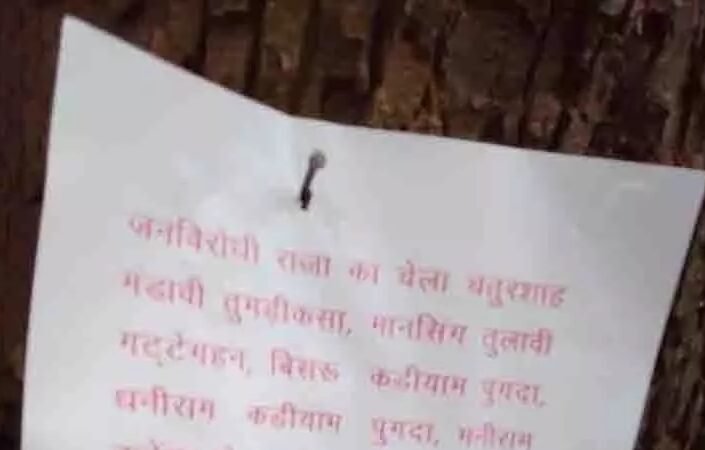 जनविरोधी राजा का चेला चतुरशाह
मंडावी तुमदीकसा, मानसिग तुलावी
गट्टेगहन, बिसरू कडीयाम पुगदा,
धनीराम कडीयाम पुगदा, मनीराम